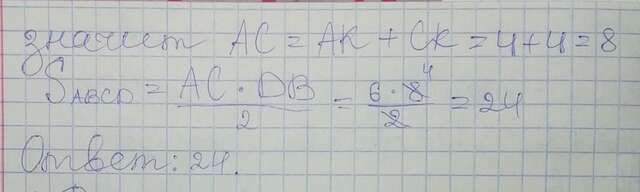 значит AC = AK + CK = 4 + 4 = 8
S_ABCD = AC · DB / 2 = 6 · 8 4 / 2 = 24
Ответ: 24.